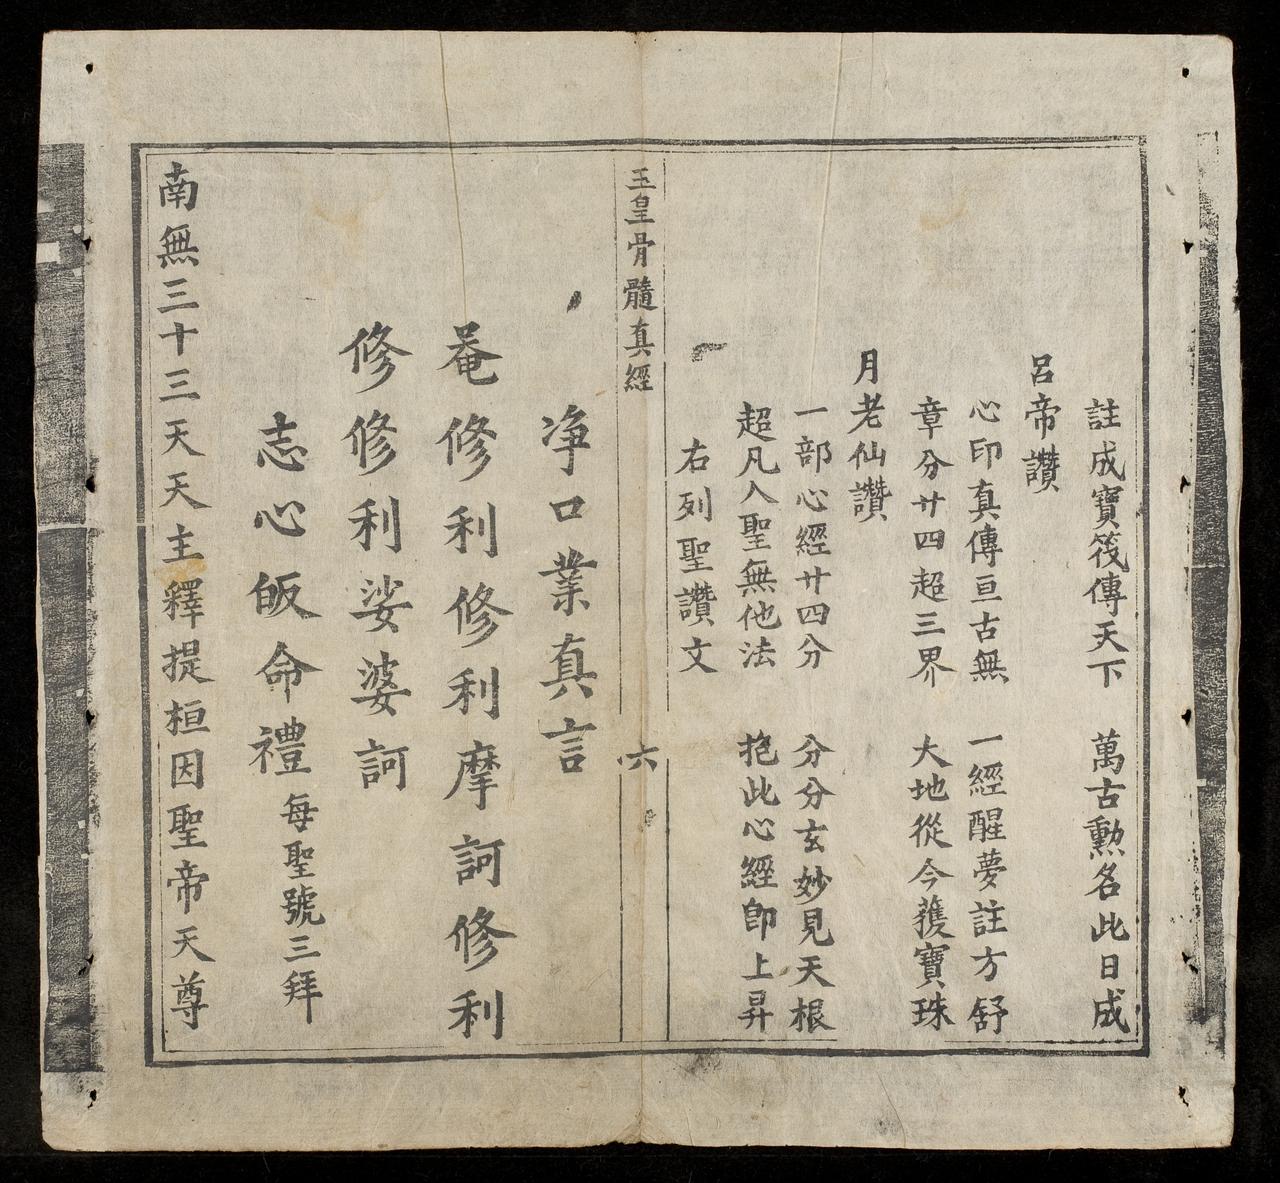 註成寶筏傳天下　萬古勲名此日成
呂帝讚
心印真傳亘古無　一經醒夢註方舒
章分廿四超三界　大地從今獲寶珠
月老仙讚
一部心經廿四分　分分玄妙見天根
超凡入聖無他法　抱此心經即上昇
右列聖讚文
玉皇骨髓真經　六
净口業真言
菴修利修利摩訶修利
修修利娑婆訶
志心皈命禮　每聖號三拜
南無三十三天天主釋提桓因聖帝天尊